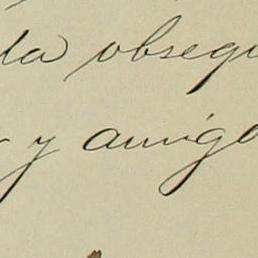 la obsequ
y amigo